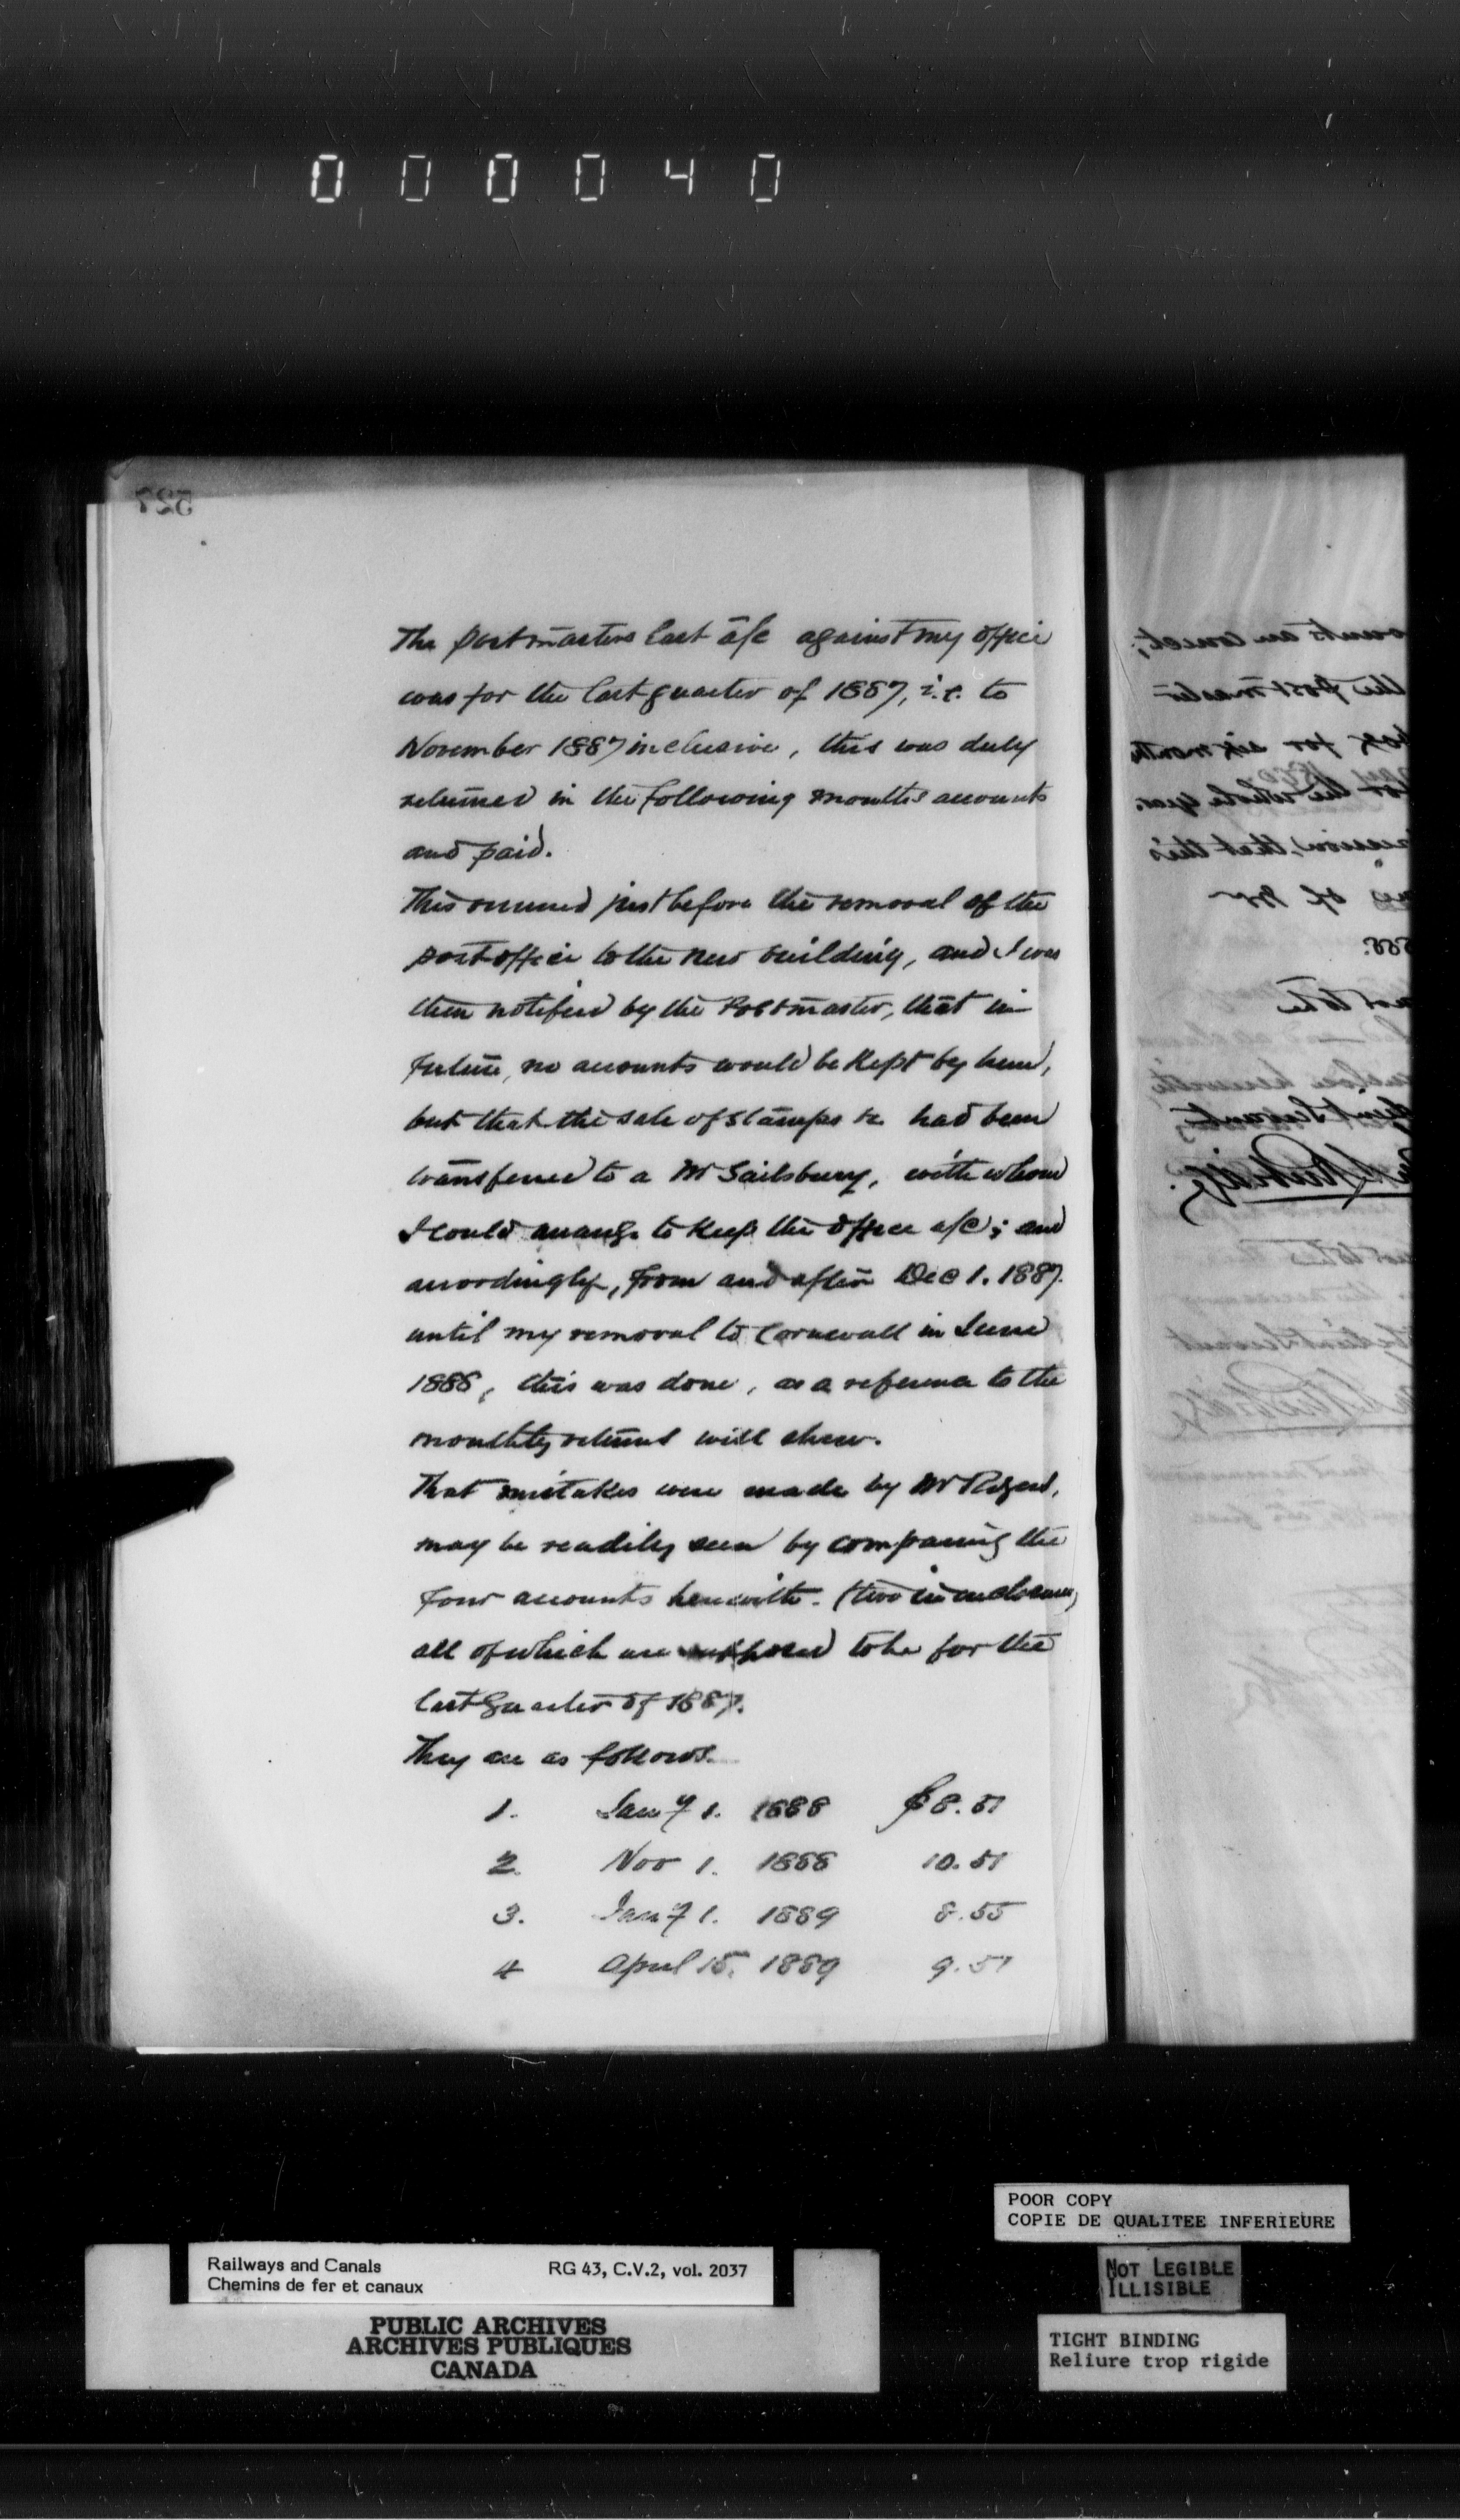 000040
527
The Postmasters last a/c against my office
was for the last quarter of 1887, i.e. to
November 1887 inclusive, this was duly
returned in the following months accounts
and paid.
This occurred just before the removal of the
post office to the new building, and I was
then notified by the Postmaster, that in
future, no accounts would be kept by him,
but that the sale of stamps &c had been
transferred to a Mr Sailsbury, with whom
I could arrange to keep the office a/c; and
accordingly, from and after Dec 1. 1887.
until my removal to Cornwall in June
1888, this was done, as a reference to the
monthly returns will shew.
That mistakes were made by Mr
may be readily seen by comparing the
four accounts herewith. (two in enclosure)
all of which are supposed to be for the
last quarter of 1887.
They are as follows.
1. Jany 1. 1888 $8.51
2. Nov 1. 1888 10.51
3. Jany 1. 1889 8.55
4 April 15. 1889 9.51
ounts are correct;
the Postmaster
for six months
for the whole year.
that this
of
not to be
POOR COPY
COPIE DE QUALITEE INFERIEURE
NOT LEGIBLE
ILLISIBLE
TIGHT BINDING
Reliure trop rigide
Railways and Canals RG 43, C.V.2, vol. 2037
Chemins de fer et canaux
PUBLIC ARCHIVES
ARCHIVES PUBLIQUES
CANADA